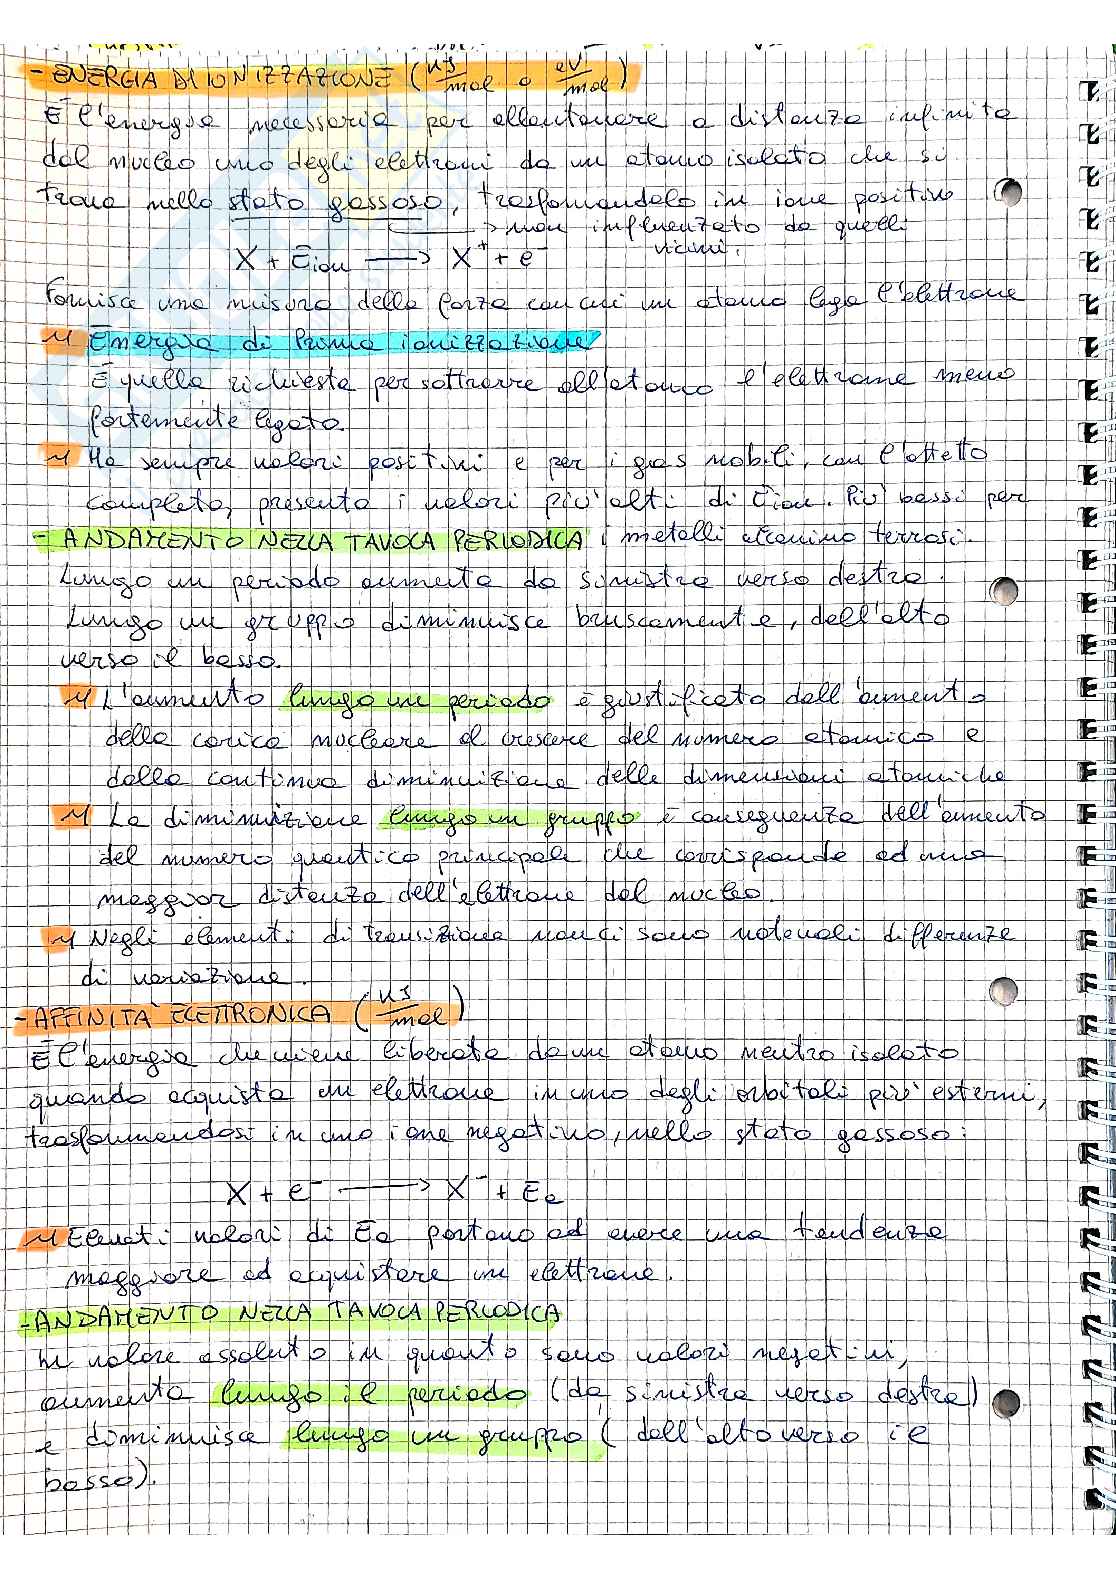 - ENERGIA DI IONIZZAZIONE (KJ/mol o eV/mol)
È l'energia necessaria per allontanare a distanza infinita
dal nucleo uno degli elettroni da un atomo isolato che si
trova nello stato gassoso, trasformandolo in ione positivo
→ non influenzato da quelli
vicini.
X + Eion → X⁺ + e⁻
Fornisce una misura della forza con cui un atomo lega l'elettrone
Energia di Prima ionizzazione
È quella richiesta per sottrarre all'atomo l'elettrone meno
fortemente legato.
Ha sempre valori positivi e per i gas nobili, con l'ottetto
completo, presenta i valori più alti di Eion. Più bassi per
- ANDAMENTO NELLA TAVOLA PERIODICA i metalli alcalino terrosi.
Lungo un periodo aumenta da sinistra verso destra.
Lungo un gruppo diminuisce bruscamente, dall'alto
verso il basso.
L'aumento lungo un periodo è giustificato dall'aumento
della carica nucleare al crescere del numero atomico e
dalla continua diminuizione delle dimensioni atomiche
La diminuizione lungo un gruppo è conseguenza dell'aumento
del numero quantico principale che corrisponde ad una
maggior distanza dell'elettrone dal nucleo.
Negli elementi di transizione non ci sono notevoli differenze
di variazione.
- AFFINITÀ ELETTRONICA (KJ/mol)
È l'energia che viene liberata da un atomo neutro isolato
quando acquista un elettrone in uno degli orbitali più esterni,
trasformandosi in uno ione negativo, nello stato gassoso:
X + e⁻ → X⁻ + Ea
Elevati valori di Ea portano ad avere una tendenza
maggiore ad acquistare un elettrone.
- ANDAMENTO NELLA TAVOLA PERIODICA
In valore assoluto in quanto sono valori negativi,
aumenta lungo il periodo (da sinistra verso destra)
e diminuisce lungo un gruppo (dall'alto verso il
basso).